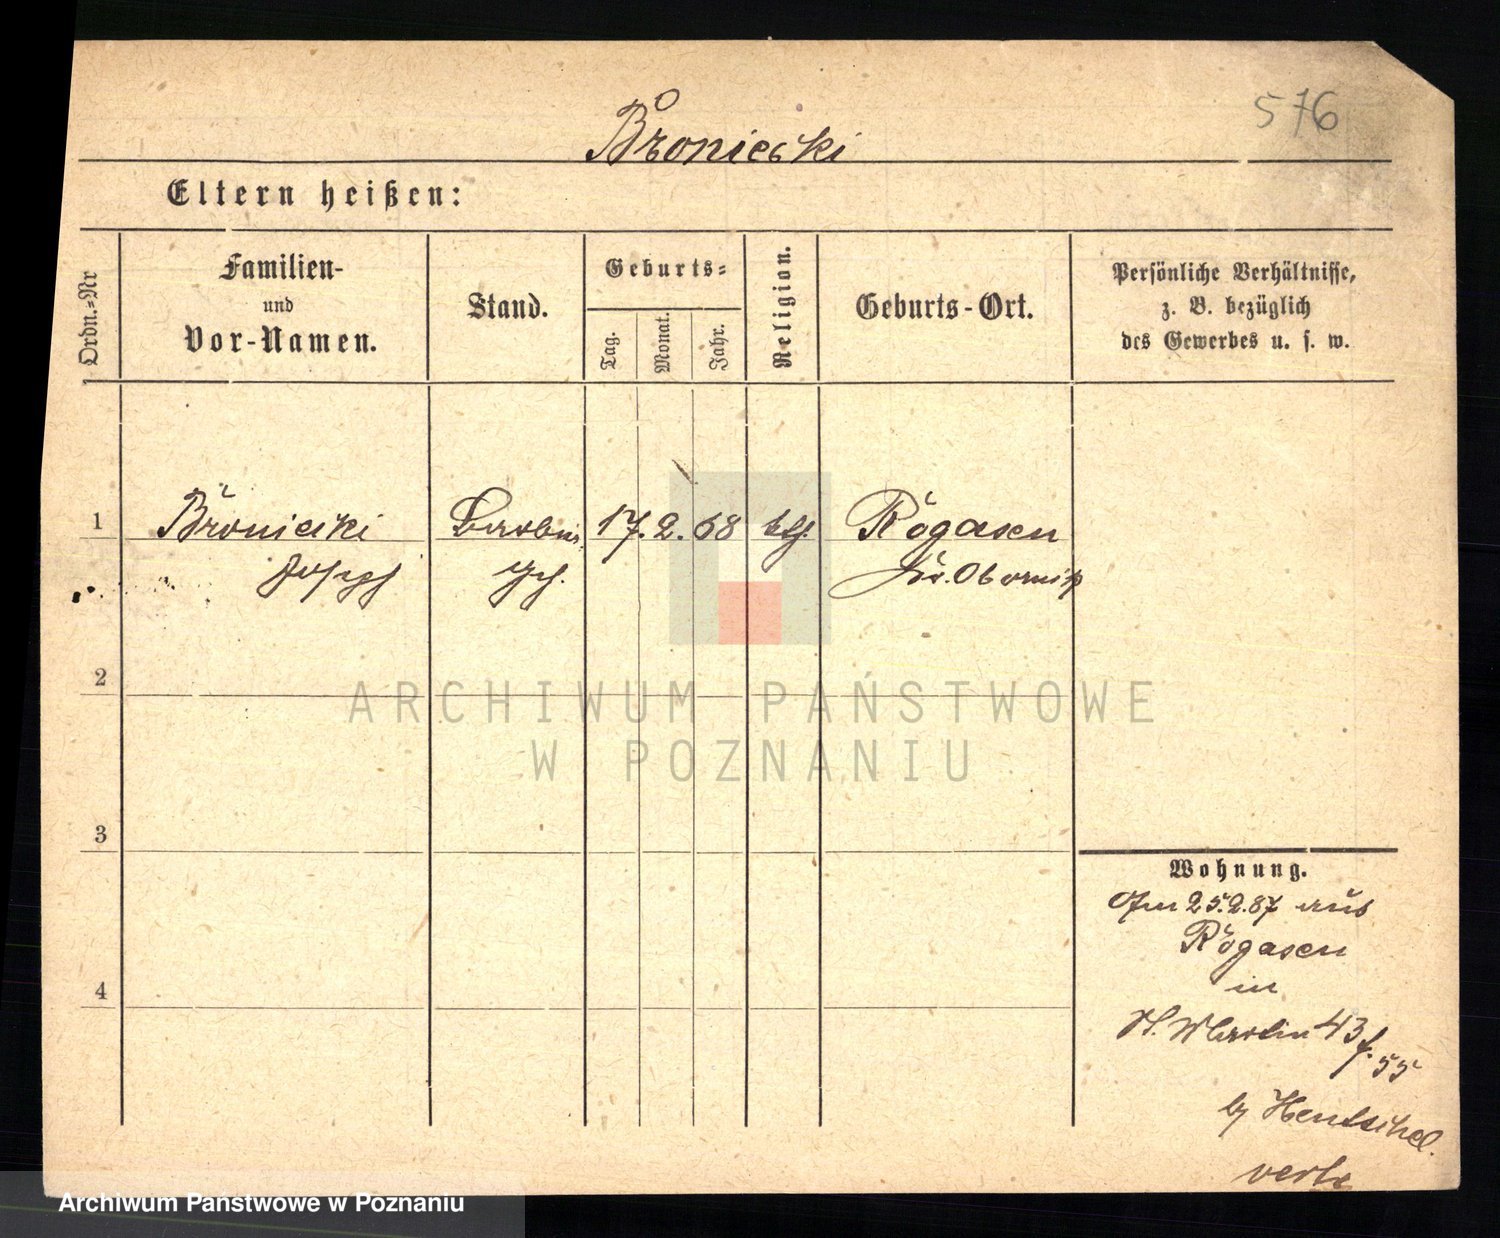 576
Broniecki
Eltern heißen:
Ordn.-Nr
Familien-
und
Vor-Namen.
Stand.
Geburts-
Tag.
Monat.
Jahr.
Religion.
Geburts-Ort.
Persönliche Verhältnisse,
z. B. bezüglich
des Gewerbes u. s. w.
1 Broniecki Barbier 17. 2. 68 kth. Rogasen
Joseph geh. Kr. Obornik
2
ARCHIWUM PAŃSTWOWE
W POZNANIU
3
Wohnung.
Am 25.2.87 aus
Rogasen
in
4
St. Martin 43
f. 55
by Hentschel.
verte
Archiwum Państwowe w Poznaniu